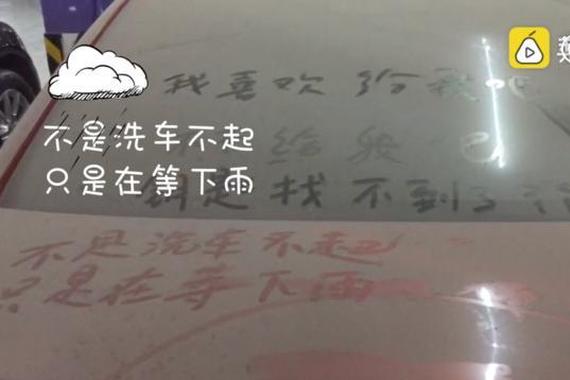 我喜欢 给我吧
不是洗车不起
给我
只是在等下雨
钥匙找不到了
不是洗车不起
只是在等下雨